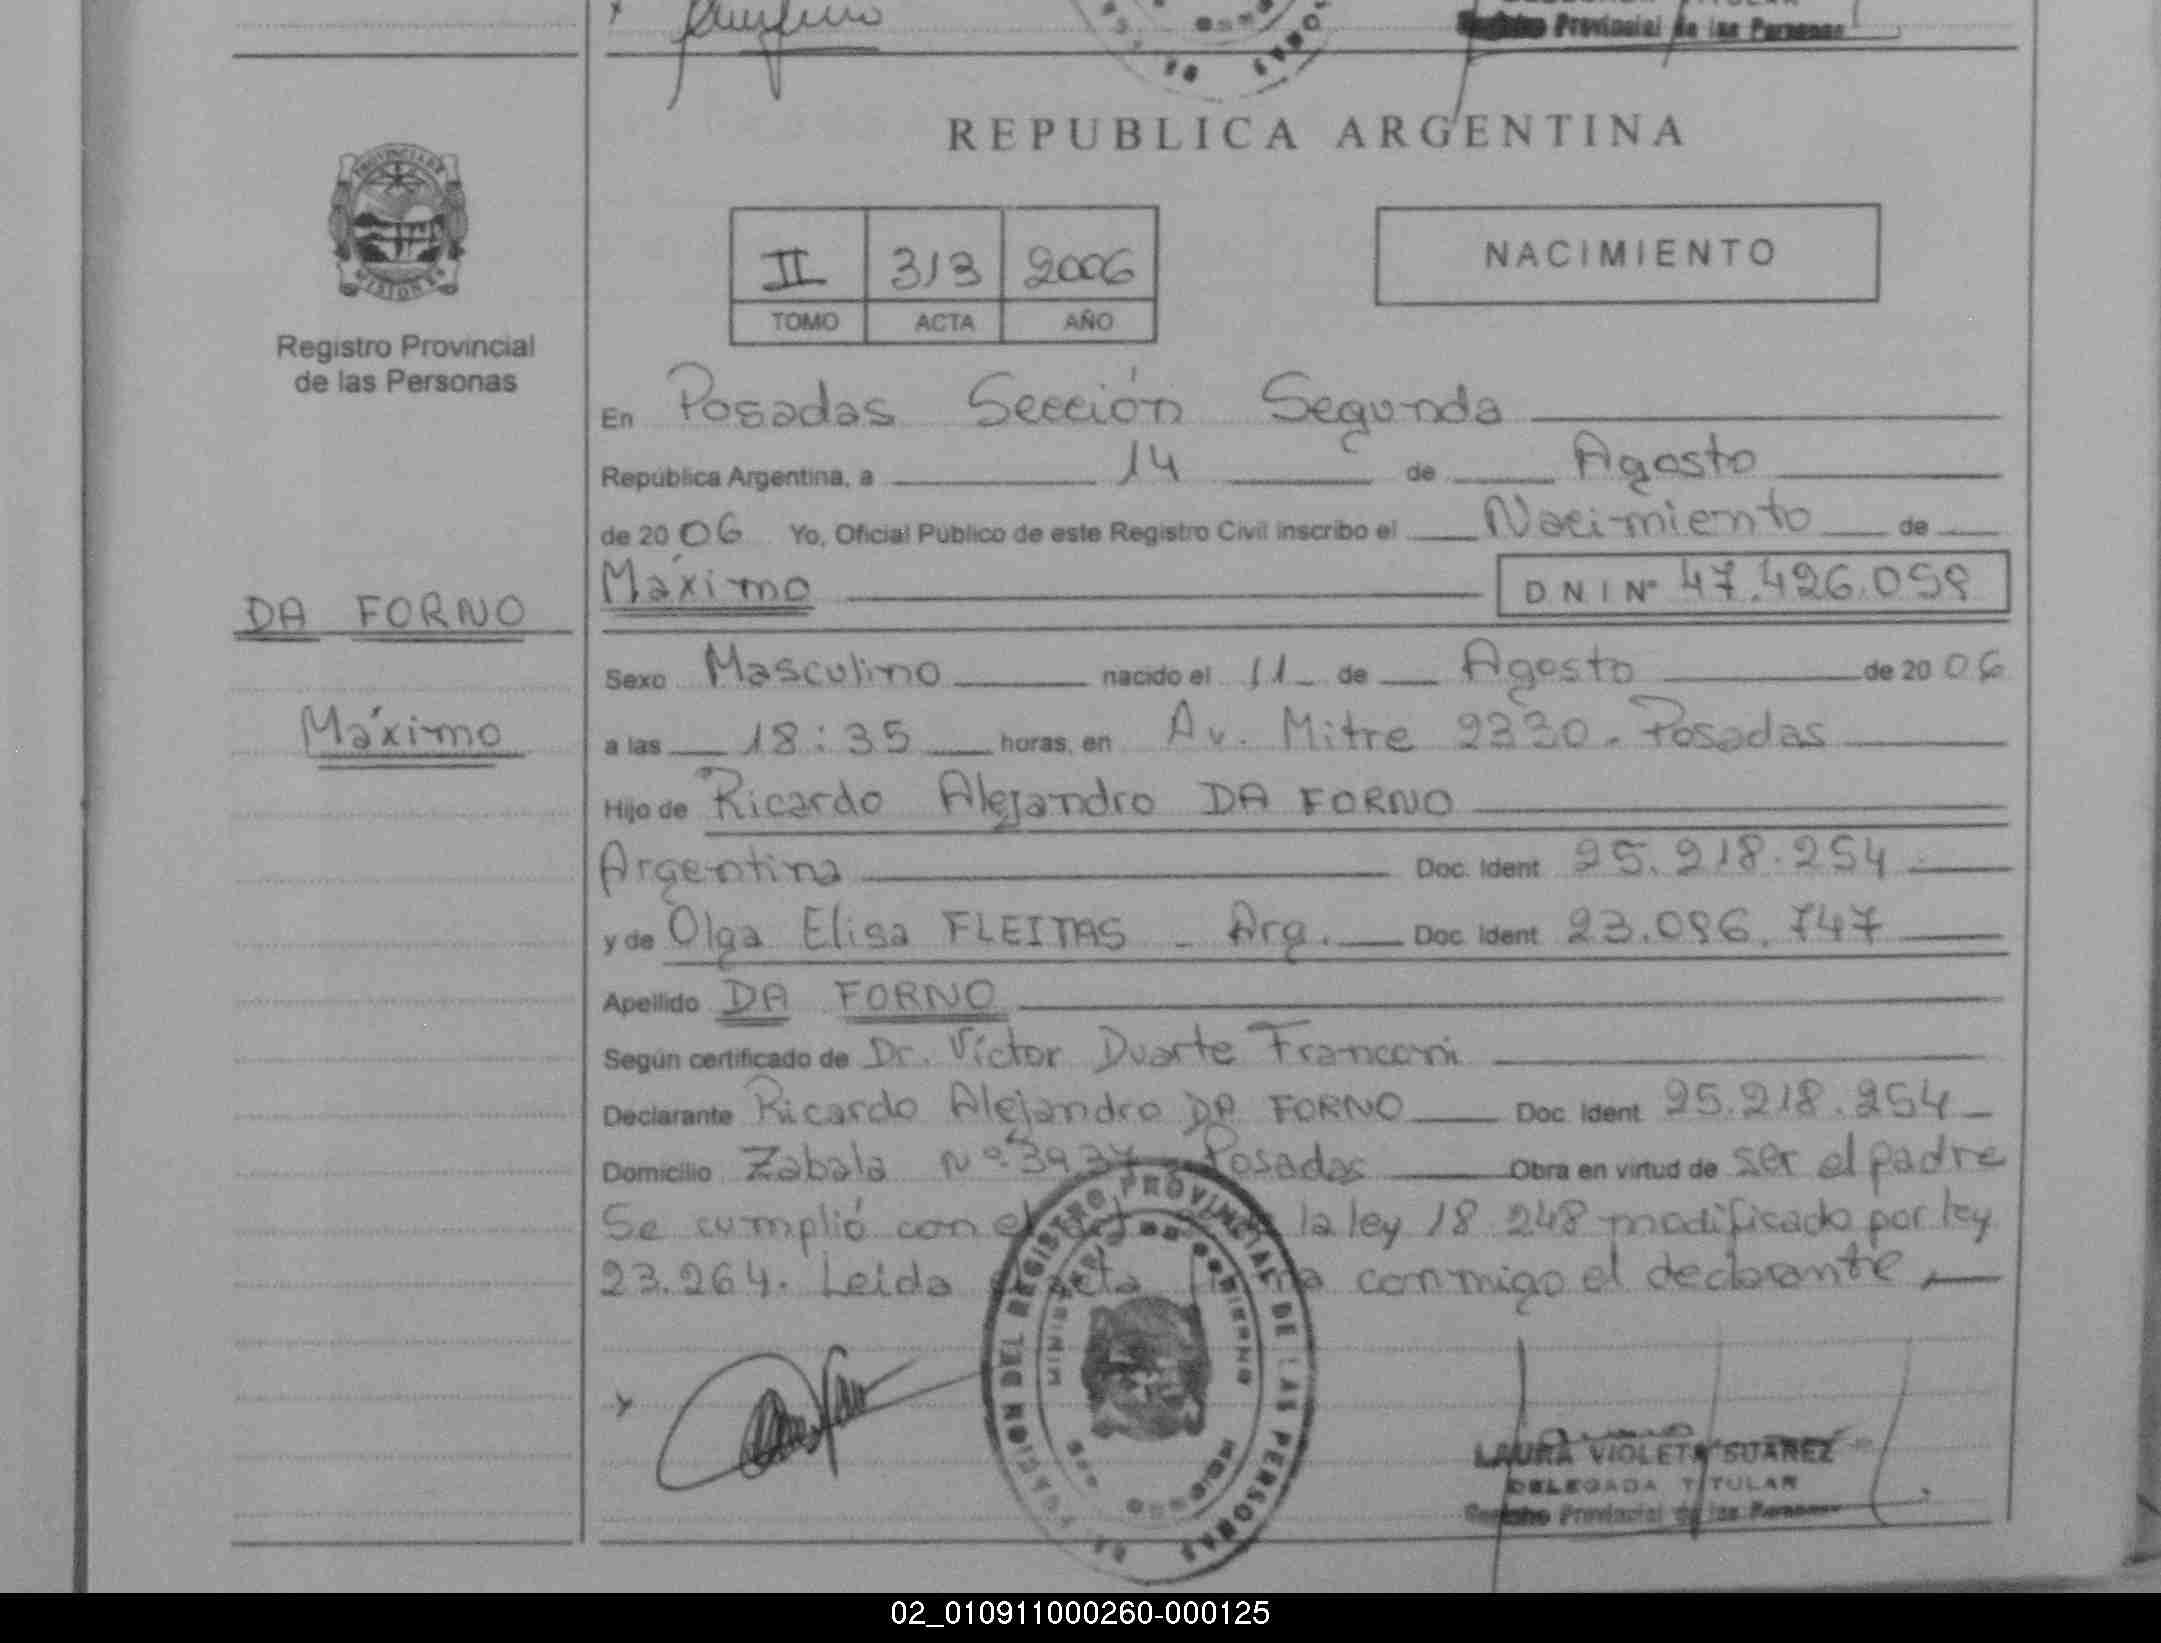 Registro Provincial de las Personas
REPUBLICA ARGENTINA
PROVINCIA DE
MISIONES
Registro Provincial
de las Personas
II 313 2006
TOMO ACTA AÑO
NACIMIENTO
En Posadas Sección Segunda
República Argentina, a 14 de Agosto
de 2006 Yo, Oficial Público de este Registro Civil inscribo el Nacimiento de
Máximo DNI Nº 47.426.059
DA FORNO
Máximo
Sexo Masculino nacido el 11 de Agosto de 2006
a las 18:35 horas, en Av. Mitre 2330 - Posadas
Hijo de Ricardo Alejandro DA FORNO
Argentina Doc. Ident 25.218.254
y de Olga Elisa FLEITAS - Arg. Doc. Ident 23.096.747
Apellido DA FORNO
Según certificado de Dr. Víctor Duarte Franconi
Declarante Ricardo Alejandro DA FORNO Doc. Ident 25.218.254
Domicilio Zabala Nº 3937 - Posadas Obra en virtud de ser el padre
Se cumplió con el la ley 18.248 modificado por ley
23.264. Leida acta conmigo el declarante
DEL REGISTRO PROVINCIAL DE LAS PERSONAS
LAURA VIOLETA SUAREZ
DELEGADA TITULAR
Registro Provincial de las Personas
02_010911000260-000125